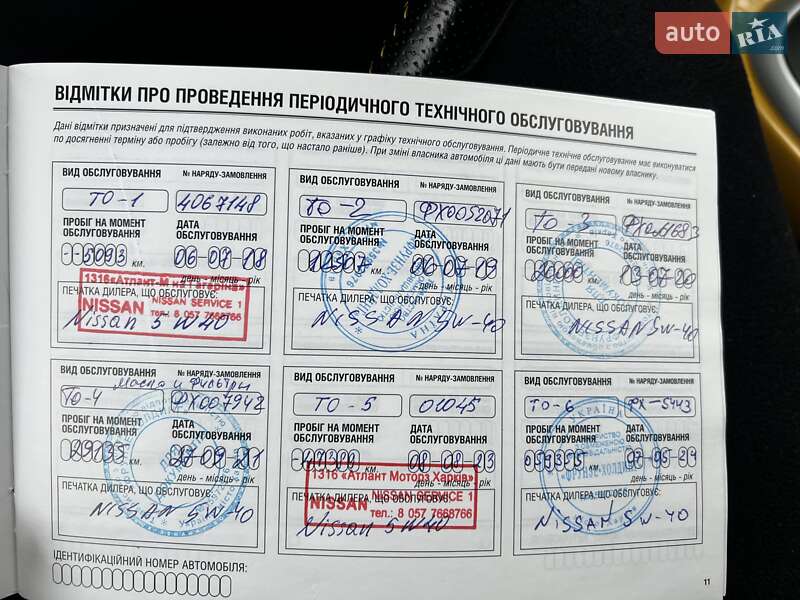 auto RIA.com
ВІДМІТКИ ПРО ПРОВЕДЕННЯ ПЕРІОДИЧНОГО ТЕХНІЧНОГО ОБСЛУГОВУВАННЯ
Дані відмітки призначені для підтвердження виконаних робіт, вказаних у графіку технічного обслуговування. Періодичне технічне обслуговуване має виконуватися
по досягненні терміну або пробігу (залежно від того, що настало раніше). При зміні власника автомобіля ці дані мають бути передані новому власнику.
ВИД ОБСЛУГОВУВАННЯ № НАРЯДУ-ЗАМОВЛЕННЯ
ТО-1 4067148
ПРОБІГ НА МОМЕНТ ОБСЛУГОВУВАННЯ
ДАТА ОБСЛУГОВУВАННЯ
5093 км. 06-08-18
день - місяць - рік
1316 «Атлант-М на Гагаріна»
ПЕЧАТКА ДИЛЕРА, ЩО ОБСЛУГОВУЄ:
NISSAN NISSAN SERVICE 1
тел.: 8 057 7668766
Nissan 5W40
ВИД ОБСЛУГОВУВАННЯ № НАРЯДУ-ЗАМОВЛЕННЯ
ТО-2 ФХ0052071
ПРОБІГ НА МОМЕНТ ОБСЛУГОВУВАННЯ
ДАТА ОБСЛУГОВУВАННЯ
км.
день - місяць - рік
ПЕЧАТКА ДИЛЕРА, ЩО ОБСЛУГОВУЄ:
NISSAN 5W-40
ВИД ОБСЛУГОВУВАННЯ № НАРЯДУ-ЗАМОВЛЕННЯ
ТО-3
ПРОБІГ НА МОМЕНТ ОБСЛУГОВУВАННЯ
ДАТА ОБСЛУГОВУВАННЯ
км. 13-07-20
день - місяць - рік
ПЕЧАТКА ДИЛЕРА, ЩО ОБСЛУГОВУЄ:
NISSAN 5W-40
ВИД ОБСЛУГОВУВАННЯ № НАРЯДУ-ЗАМОВЛЕННЯ
Масла и Фильтры
ТО-4 ФХ007942
ПРОБІГ НА МОМЕНТ ОБСЛУГОВУВАННЯ
ДАТА ОБСЛУГОВУВАННЯ
км. 27-09-21
день - місяць - рік
ПЕЧАТКА ДИЛЕРА, ЩО ОБСЛУГОВУЄ:
NISSAN 5W-40
ВИД ОБСЛУГОВУВАННЯ № НАРЯДУ-ЗАМОВЛЕННЯ
ТО-5 01045
ПРОБІГ НА МОМЕНТ ОБСЛУГОВУВАННЯ
ДАТА ОБСЛУГОВУВАННЯ
08-08-23
1316 «Атлант Моторз Харків»
день - місяць - рік
ПЕЧАТКА ДИЛЕРА, ЩО ОБСЛУГОВУЄ:
NISSAN NISSAN SERVICE 1
тел.: 8 057 7668766
Nissan 5W40
ВИД ОБСЛУГОВУВАННЯ № НАРЯДУ-ЗАМОВЛЕННЯ
ТО-6 ФХ-5443
УКРАЇНА
ПРОБІГ НА МОМЕНТ ОБСЛУГОВУВАННЯ
ДАТА ОБСЛУГОВУВАННЯ
км.
день - місяць - рік
ПЕЧАТКА ДИЛЕРА, ЩО ОБСЛУГОВУЄ:
NISSAN 5W-40
ІДЕНТИФІКАЦІЙНИЙ НОМЕР АВТОМОБІЛЯ:
11